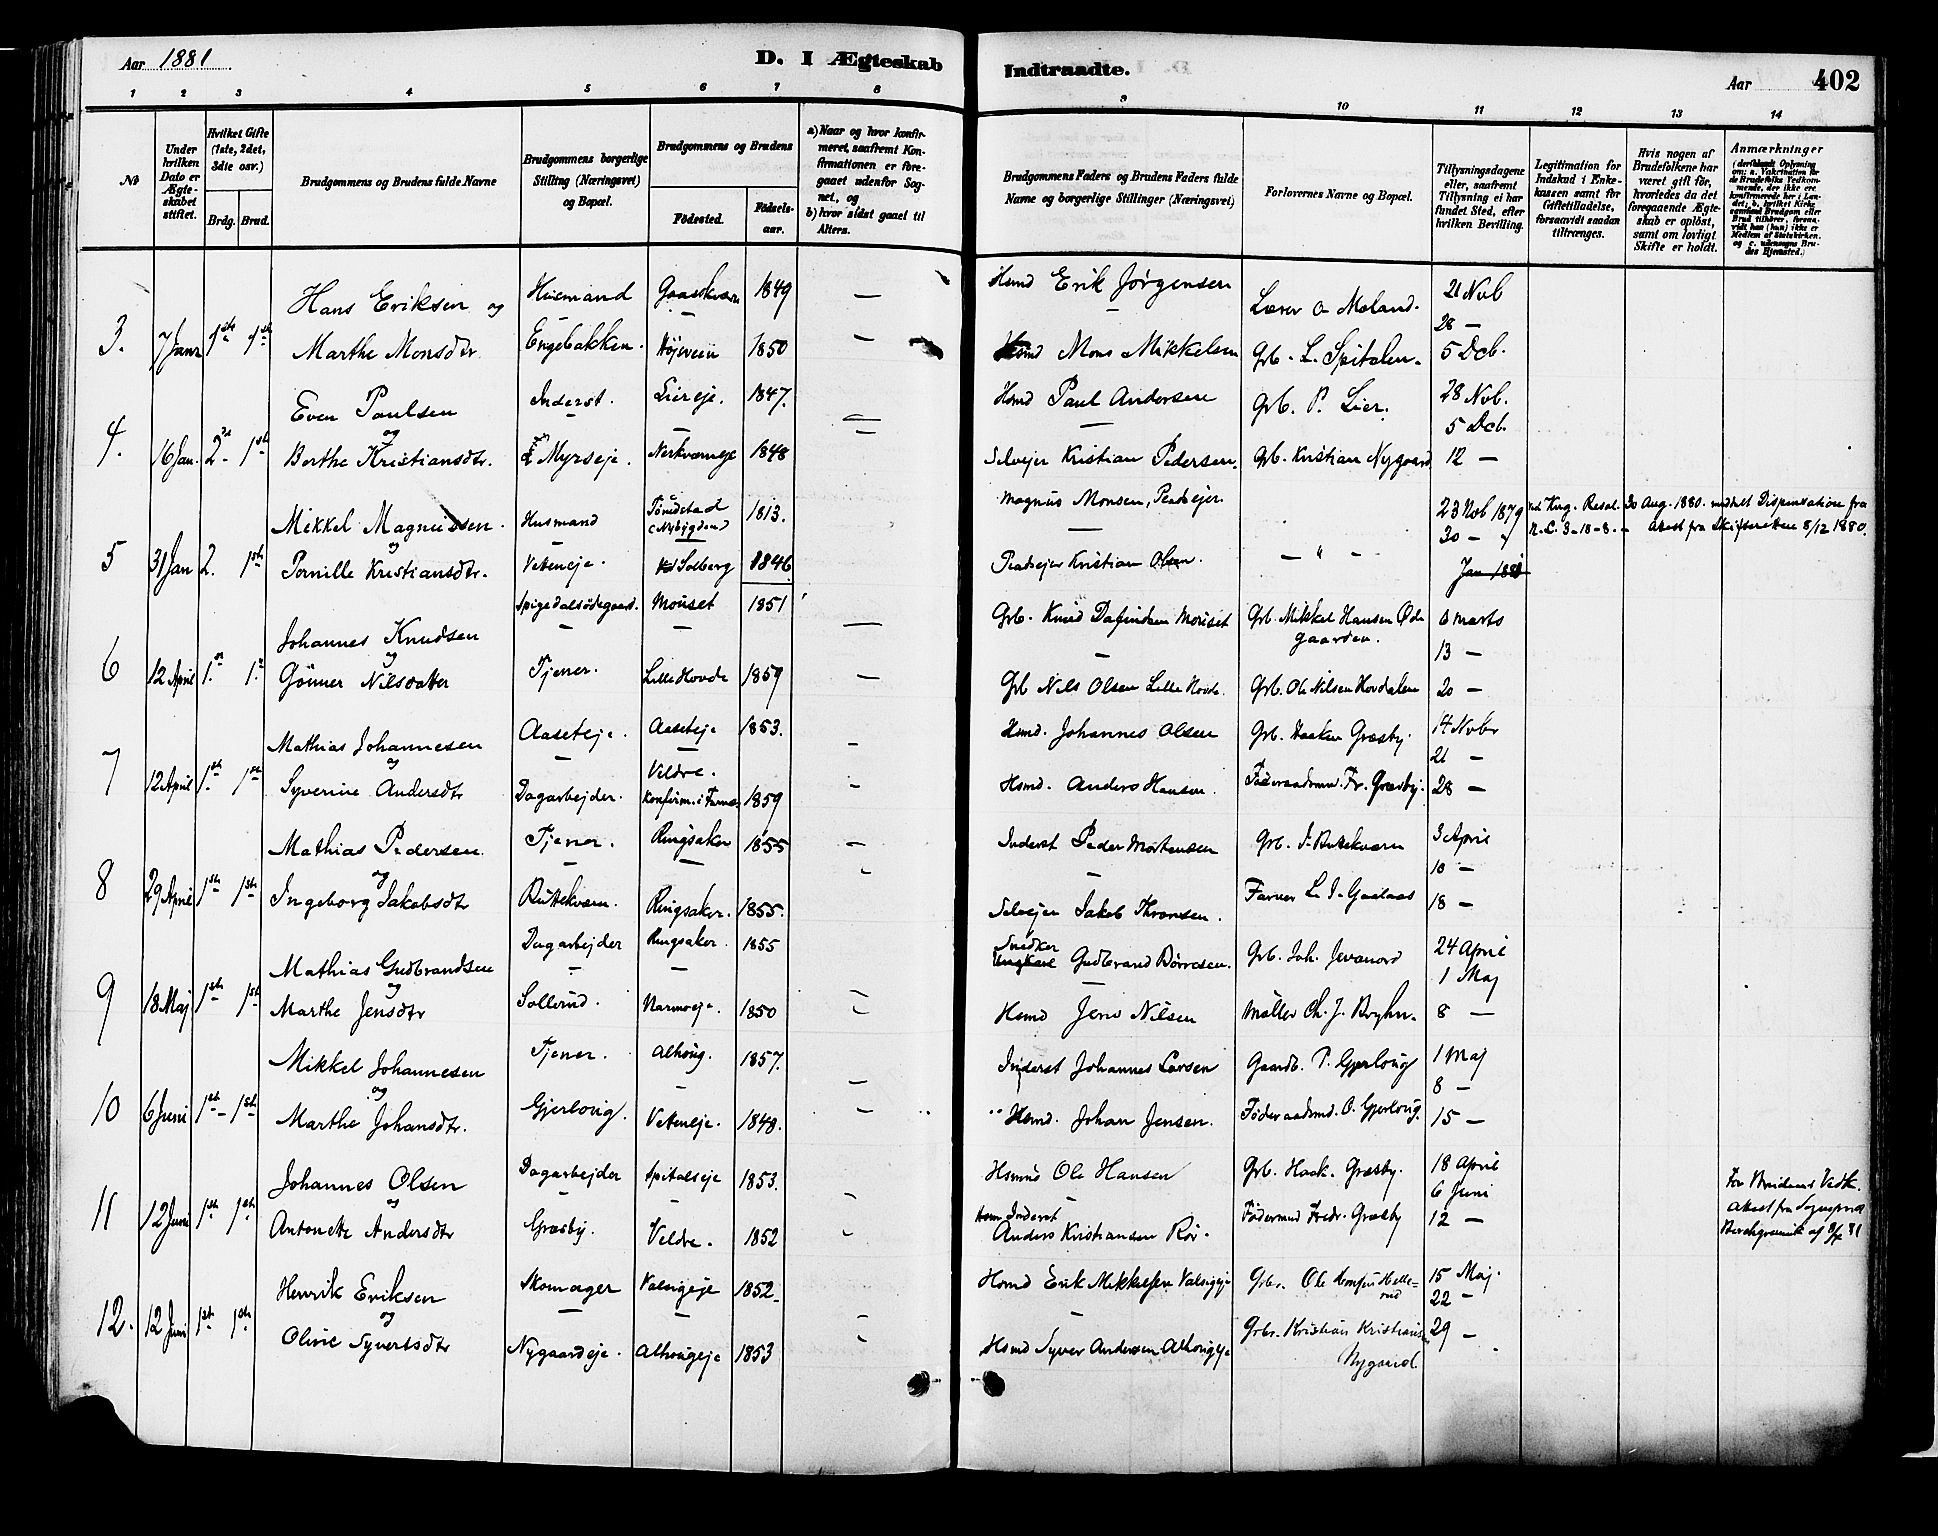 Aar 1881
D. I Ægteskab
Indtraadte.
Aar 402
1 2 3 4 5 6 7 8 9 10 11 12 13 14
No
Under hvilken Dato er Ægteskabet stiftet.
Hvilket Gifte (1ste, 2det, 3die osv.)
Brdg. Brud.
Brudgommens og Brudens fulde Navne
Brudgommens borgerlige Stilling (Næringsvei) og Bopæl.
Brudgommens og Brudens
Fødested. Fødselsaar.
a) Naar og hvor konfirmeret, saafremt Konfirmationen er foregaaet udenfor Sognet, og
b) hvor sidst gaaet til Alters.
Brudgommens Faders og Brudens Faders fulde Navne og borgerlige Stillinger (Næringsvei)
Forlovernes Navne og Bopæl.
Tillysningsdagene eller, saafremt Tillysning ei har fundet Sted, efter hvilken Bevilling.
Legitimation for Indskud i Enkekassen samt for Giftetilladelse, forsaavidt saadan tiltrænges.
Hvis nogen af Brudefolkene har været gift før, hvorledes da det foregaaende Ægteskab er opløst, samt om lovligt Skifte er holdt.
Anmærkninger
3. 7 Janr 1ste 1ste
Hans Eriksen og Husmand 1849 — Hsmd Erik Jørgensen Lærer O Moland. 21 Nvb
28 —
Marthe Monsdtr. Engebakken. Højeveien 1850 — Hsmd Mons Mikkelsen Grb. L. Spitalen. 5 Dcb.
4. 16 Jan. 2 1ste
Even Paulsen Inderst. Liereje. 1847. Hsmd Paul Andersen Grb. P. Lier. 28 Nvb.
og 5 Dcb.
Berthe Kristiansdtr. Myrseje. 1848 Selvejer Kristian Pedersen. Grb. Kristian Nygaard 12 —
5 31 Jan 2. 1ste
Mikkel Magnussen. Husmand (Nybygden) 1813. Magnus Monsen, 23 Nvb 1879 30 Aug. 1880. Dispensation fra
og 30 — Attest fra Skifteretten 8/12 1880.
Pernille Kristiansdtr. Vetteneje. Solberg 1846 Kristian Olsen. — " — Jan 1881
6 12 April 1. 1.
Johannes Knudsen Spigedalsødegaard. 1851 Grb. Knud Grb. Mikkel Hansen Ødegaarden. 6 Marts
og 13 —
Gønner Nilsdatter Tjener. Lille Hovde 1859 — Grb Nils Olsen Lille Hovde. Grb. Ole Nilsen Hovdalen 20 —
7 12 April 1ste 1ste
Mathias Johannesen Aaseteje. Aaseteje 1853. — Hsmd. Johannes Olsen Grb. Haaken Græsby. 14 Nvbr
og 21 —
Syverine Andersdtr Dagarbejder. Veldre. Konfirm. i Furnes 1859 Hsmd. Anders Hansen. Føderaadsmd. Fr. Græsby. 28 —
8 29 April 1ste 1ste
Mathias Pedersen. Tjener. Ringsaker 1855 — Inderst Peder Mortensen Grb. J. Buttekværn 3 April
og 10 —
Ingeborg Jakobsdtr Buttekværn. Ringsaker. 1855. Selvejer Jakob Thronsen. L. J. Gaalaas 18 —
9 18 Maj 1ste 1ste
Mathias Gudbrandsen Dagarbejder Ringsaker 1855 Snedker Gudbrand Børresen. Grb. Joh. Jevanord 24 April
og 1 Maj
Marthe Jensdtr Sollerud. 1850 Hsmd Jens Nilsen Møller Ch. J. Bryhn. 8 —
10 6 Juni 1ste 1ste
Mikkel Johannesen Tjener. Alhoug. 1857. — Inderst Johannes Larsen Gaardb. P. Gjerloug 1 Maj
og 8 —
Marthe Johansdtr. Gjerloug. Vetteneje. 1848. — Hsmd. Johan Jensen. Føderaadsmd. O. Gjerloug. 15 —
11 12 Juni 1ste 1ste
Johannes Olsen Dagarbejder Spitalseje 1853. Hsmd Ole Hansen Grb. Haak. Græsby. 18 April
og 6 Juni
Antonette Andersdtr Græsby. Veldre. 1852 Inderst Anders Kristiansen Rör. Födermd Fredr. Græsby 12 —
For Brudens Vedk.
12. 12 Juni 1ste 1ste
Henrik Eriksen Skomager Valsigeje 1852. Hsmd Erik Mikkelsen Valsigeje Grbr. Ole 15 Maj.
og 22 —
Oline Syvertsdtr Nygaardeje. Alhougeje 1853 Hsmd Syver Andersen Alhougeje Grbr. Kristian Kristians 29 —
Nygaard.